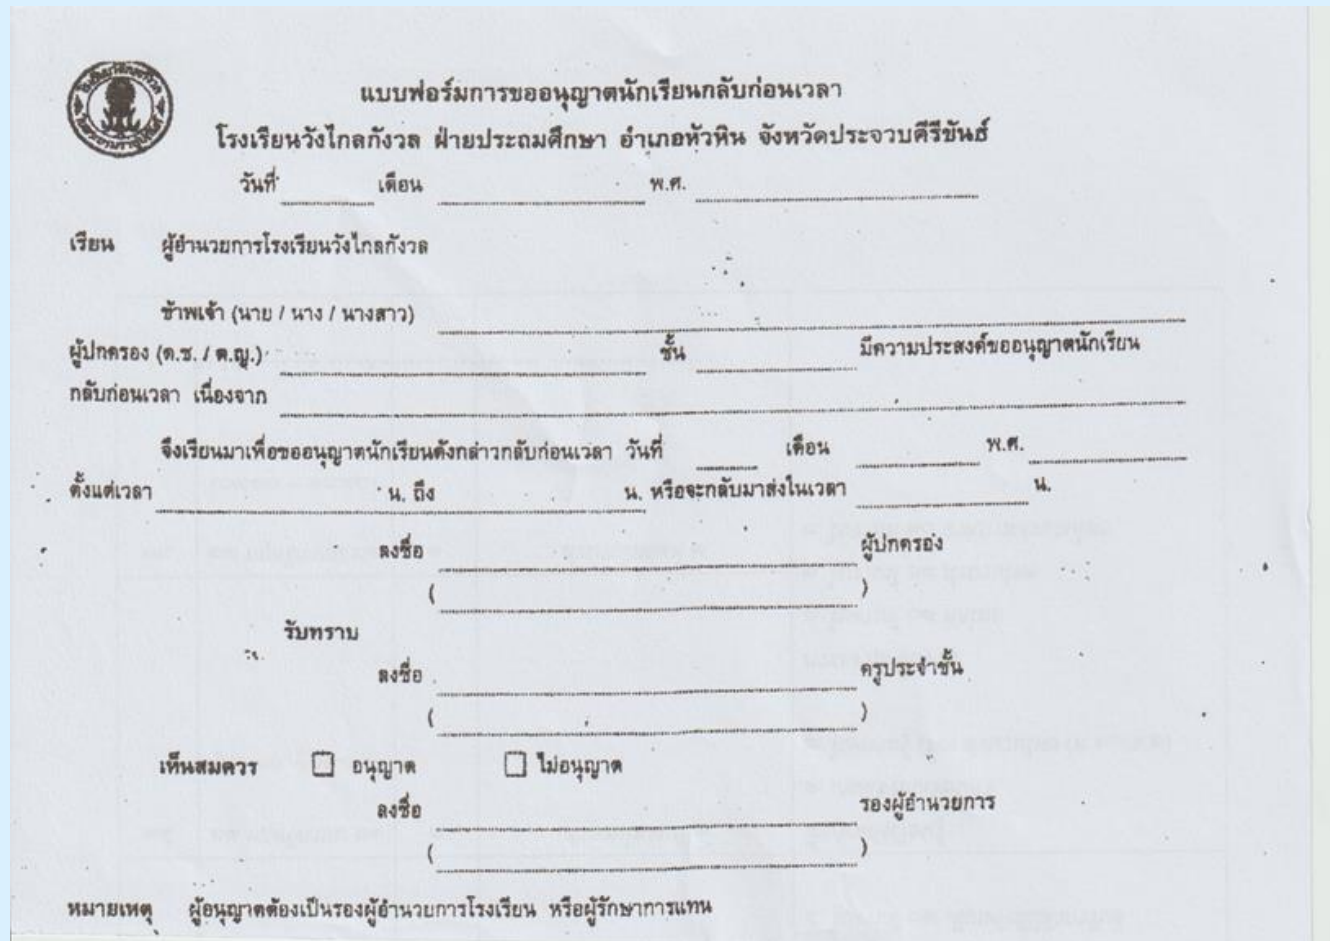 แบบฟอร์มการขออนุญาตนักเรียนกลับก่อนเวลา
โรงเรียนวังไกลกังวล ฝ่ายประถมศึกษา อำเภอหัวหิน จังหวัดประจวบคีรีขันธ์
วันที่ เดือน พ.ศ.
เรียน ผู้อำนวยการโรงเรียนวังไกลกังวล
ข้าพเจ้า (นาย / นาง / นางสาว)
ผู้ปกครอง (ด.ช. / ด.ญ.) ชั้น มีความประสงค์ขออนุญาตนักเรียน
กลับก่อนเวลา เนื่องจาก
จึงเรียนมาเพื่อขออนุญาตนักเรียนดังกล่าวกลับก่อนเวลา วันที่ เดือน พ.ศ.
ตั้งแต่เวลา น. ถึง น. หรือจะกลับมาส่งในเวลา น.
ลงชื่อ ผู้ปกครอง
( )
รับทราบ
ลงชื่อ ครูประจำชั้น
( )
เห็นสมควร อนุญาต ไม่อนุญาต
ลงชื่อ รองผู้อำนวยการ
( )
หมายเหตุ ผู้อนุญาตต้องเป็นรองผู้อำนวยการโรงเรียน หรือผู้รักษาการแทน